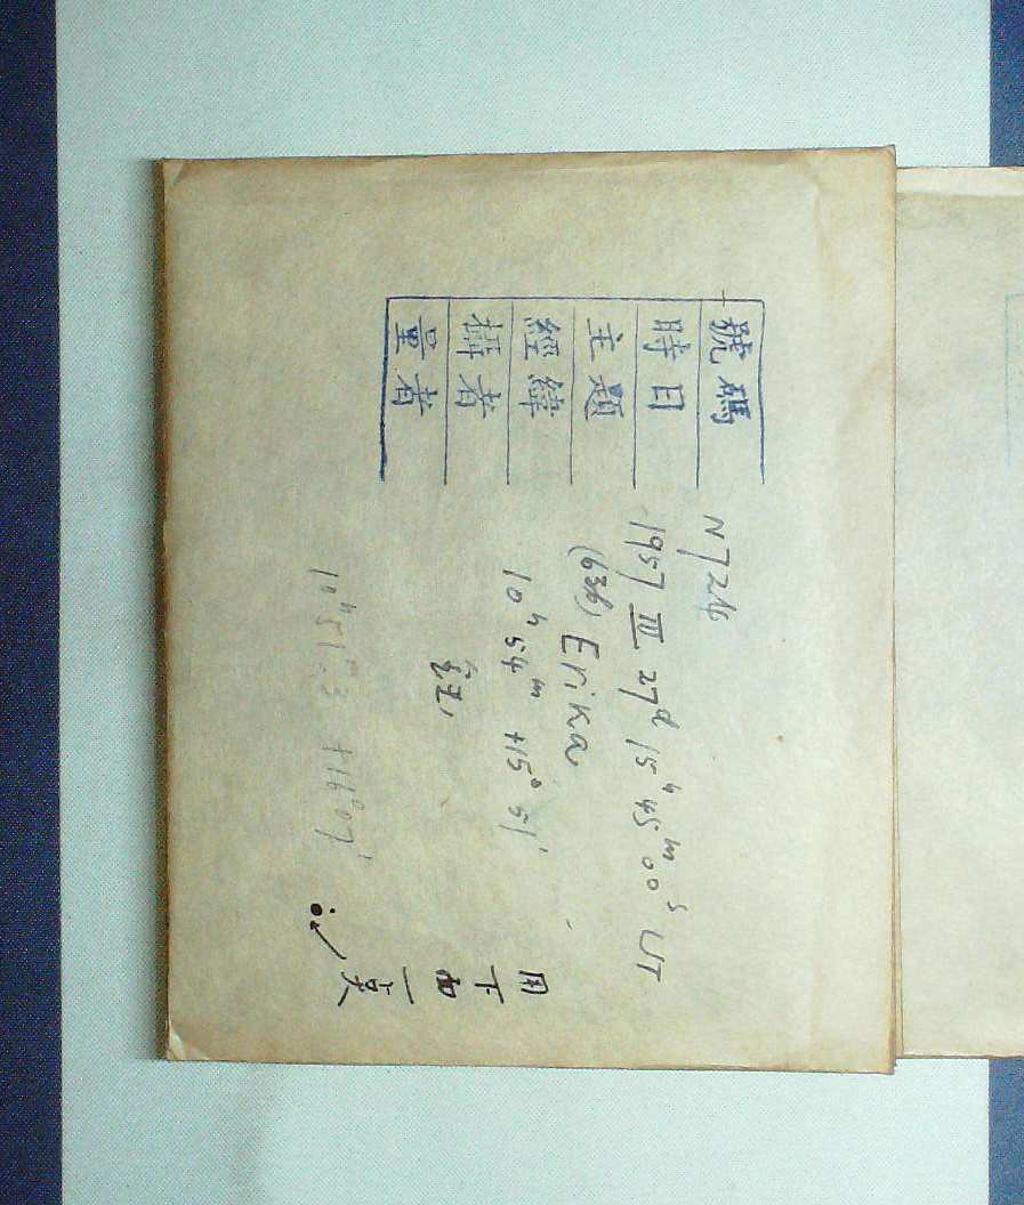 號碼 N724
時日 1957 III 27d 15h 45m 00s UT
主題 (636) Erika
經緯 10h 54m +15° 51'
攝者
量者
10h 51m.3 +16° 07'
用下面一点